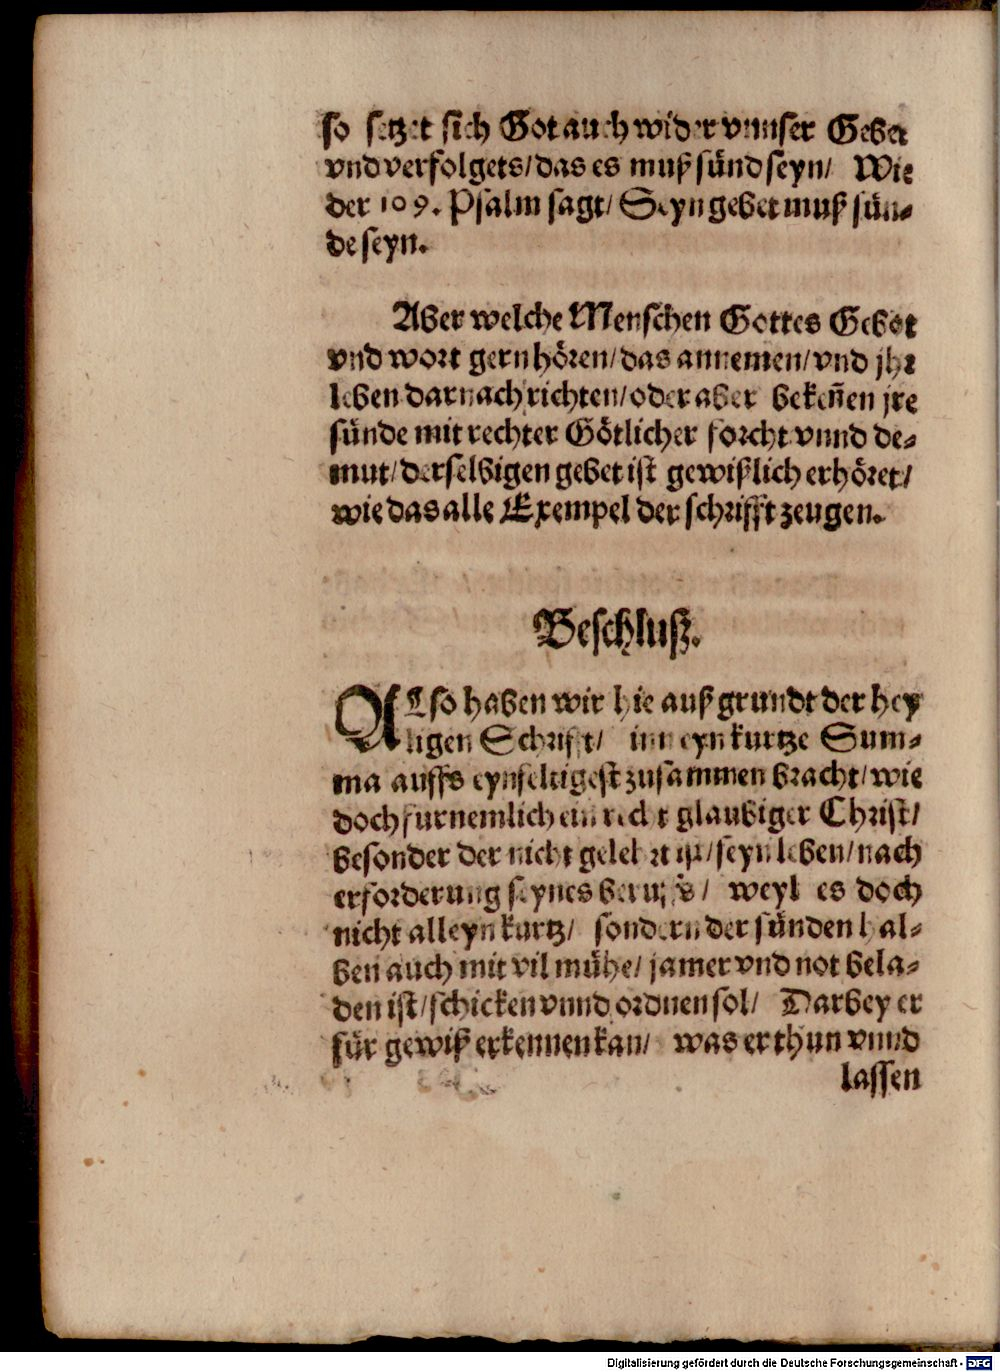 so setzet sich Got auch wider vnnser Gebet
vnd verfolgets/ das es muß sünd seyn/ Wie
der 109. Psalm sagt/ Seyn gebet muß sün-
de seyn.
Aber welche Menschen Gottes Gebot
vnd wort gern hören/ das annemen/ vnd jhr
leben darnach richten/ oder aber bekeñen jre
sünde mit rechter Götlicher forcht vnnd de-
mut/ derselbigen gebet ist gewißlich erhöret/
wie das alle Exempel der schrifft zeugen.
Beschluß.
ALso haben wir hie auß grundt der hey
ligen Schrifft/ inn eyn kurtze Sum-
ma auffs eynfeltigest zusammen bracht/ wie
doch furnemlich ein recht glaubiger Christ/
besonder der nicht gelehrt ist/ seyn leben/ nach
erforderung seynes beruffs/ weyl es doch
nicht alleyn kurtz/ sondern der sünden hal-
ben auch mit vil mühe/ jamer vnd not bela-
den ist/ schicken vnnd ordnen sol/ Darbey er
für gewiß erkennen kan/ was er thun vnnd
lassen
Digitalisierung gefördert durch die Deutsche Forschungsgemeinschaft - DFG